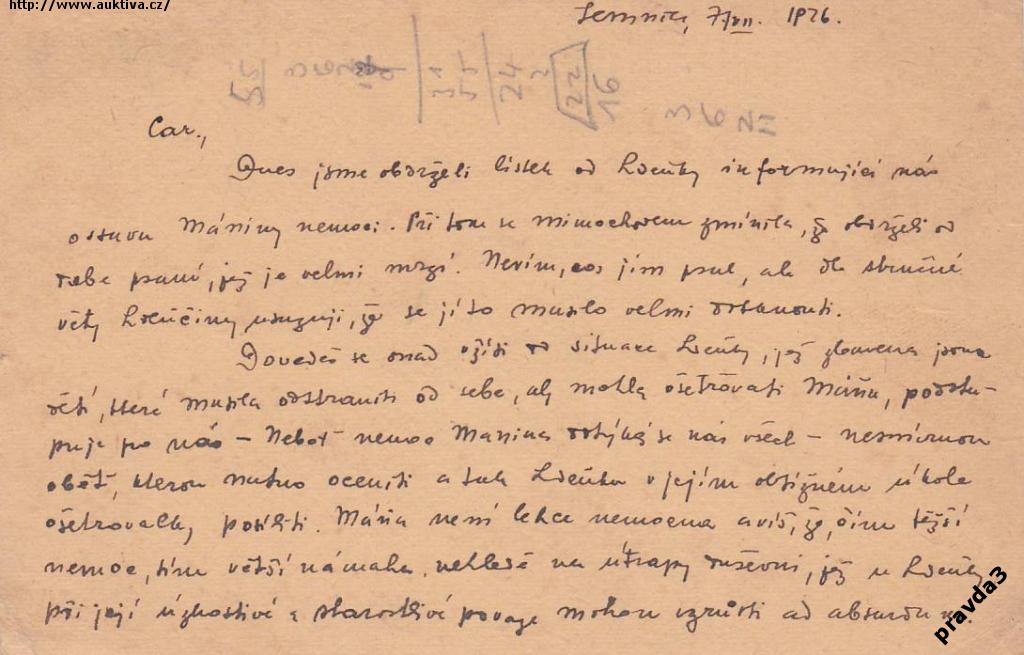 http://www.auktiva.cz/
7/VII. 1926.
55
31
55
24
2
22
16
36
Car.,
Dnes jsme obdrželi lístek od Zdeňky informující nás
o stavu Mániny nemoci. Při tom se mimochodem zmínila, že obdrželi od
tebe psaní, jež je velmi mrzí. Nevím, cos jim psal, ale dle stručné
věty Zdenčiny usuzuji, že se jí to musilo velmi dotknouti.
Dovedeš se snad vžíti do situace Zdeňky, jež zbavena jsouc
dětí, které musila odstraniti od sebe, aby mohla ošetřovati Máňu, podstu-
puje pro nás – Neboť nemoc Manina dotýká se nás všech – nesmírnou
oběť, kterou nutno oceniti a tak Zdeňku v jejím obtížném úkole
ošetrovatky posíliti. Máňa není lehce nemocna a víš, že, čím těžší
nemoc, tím větší námaha, nehledě na útrapy duševní, jež u Zdeňky
při její úzkostlivé a starostlivé povaze mohou vzrůsti ad absurdum.
pravda3